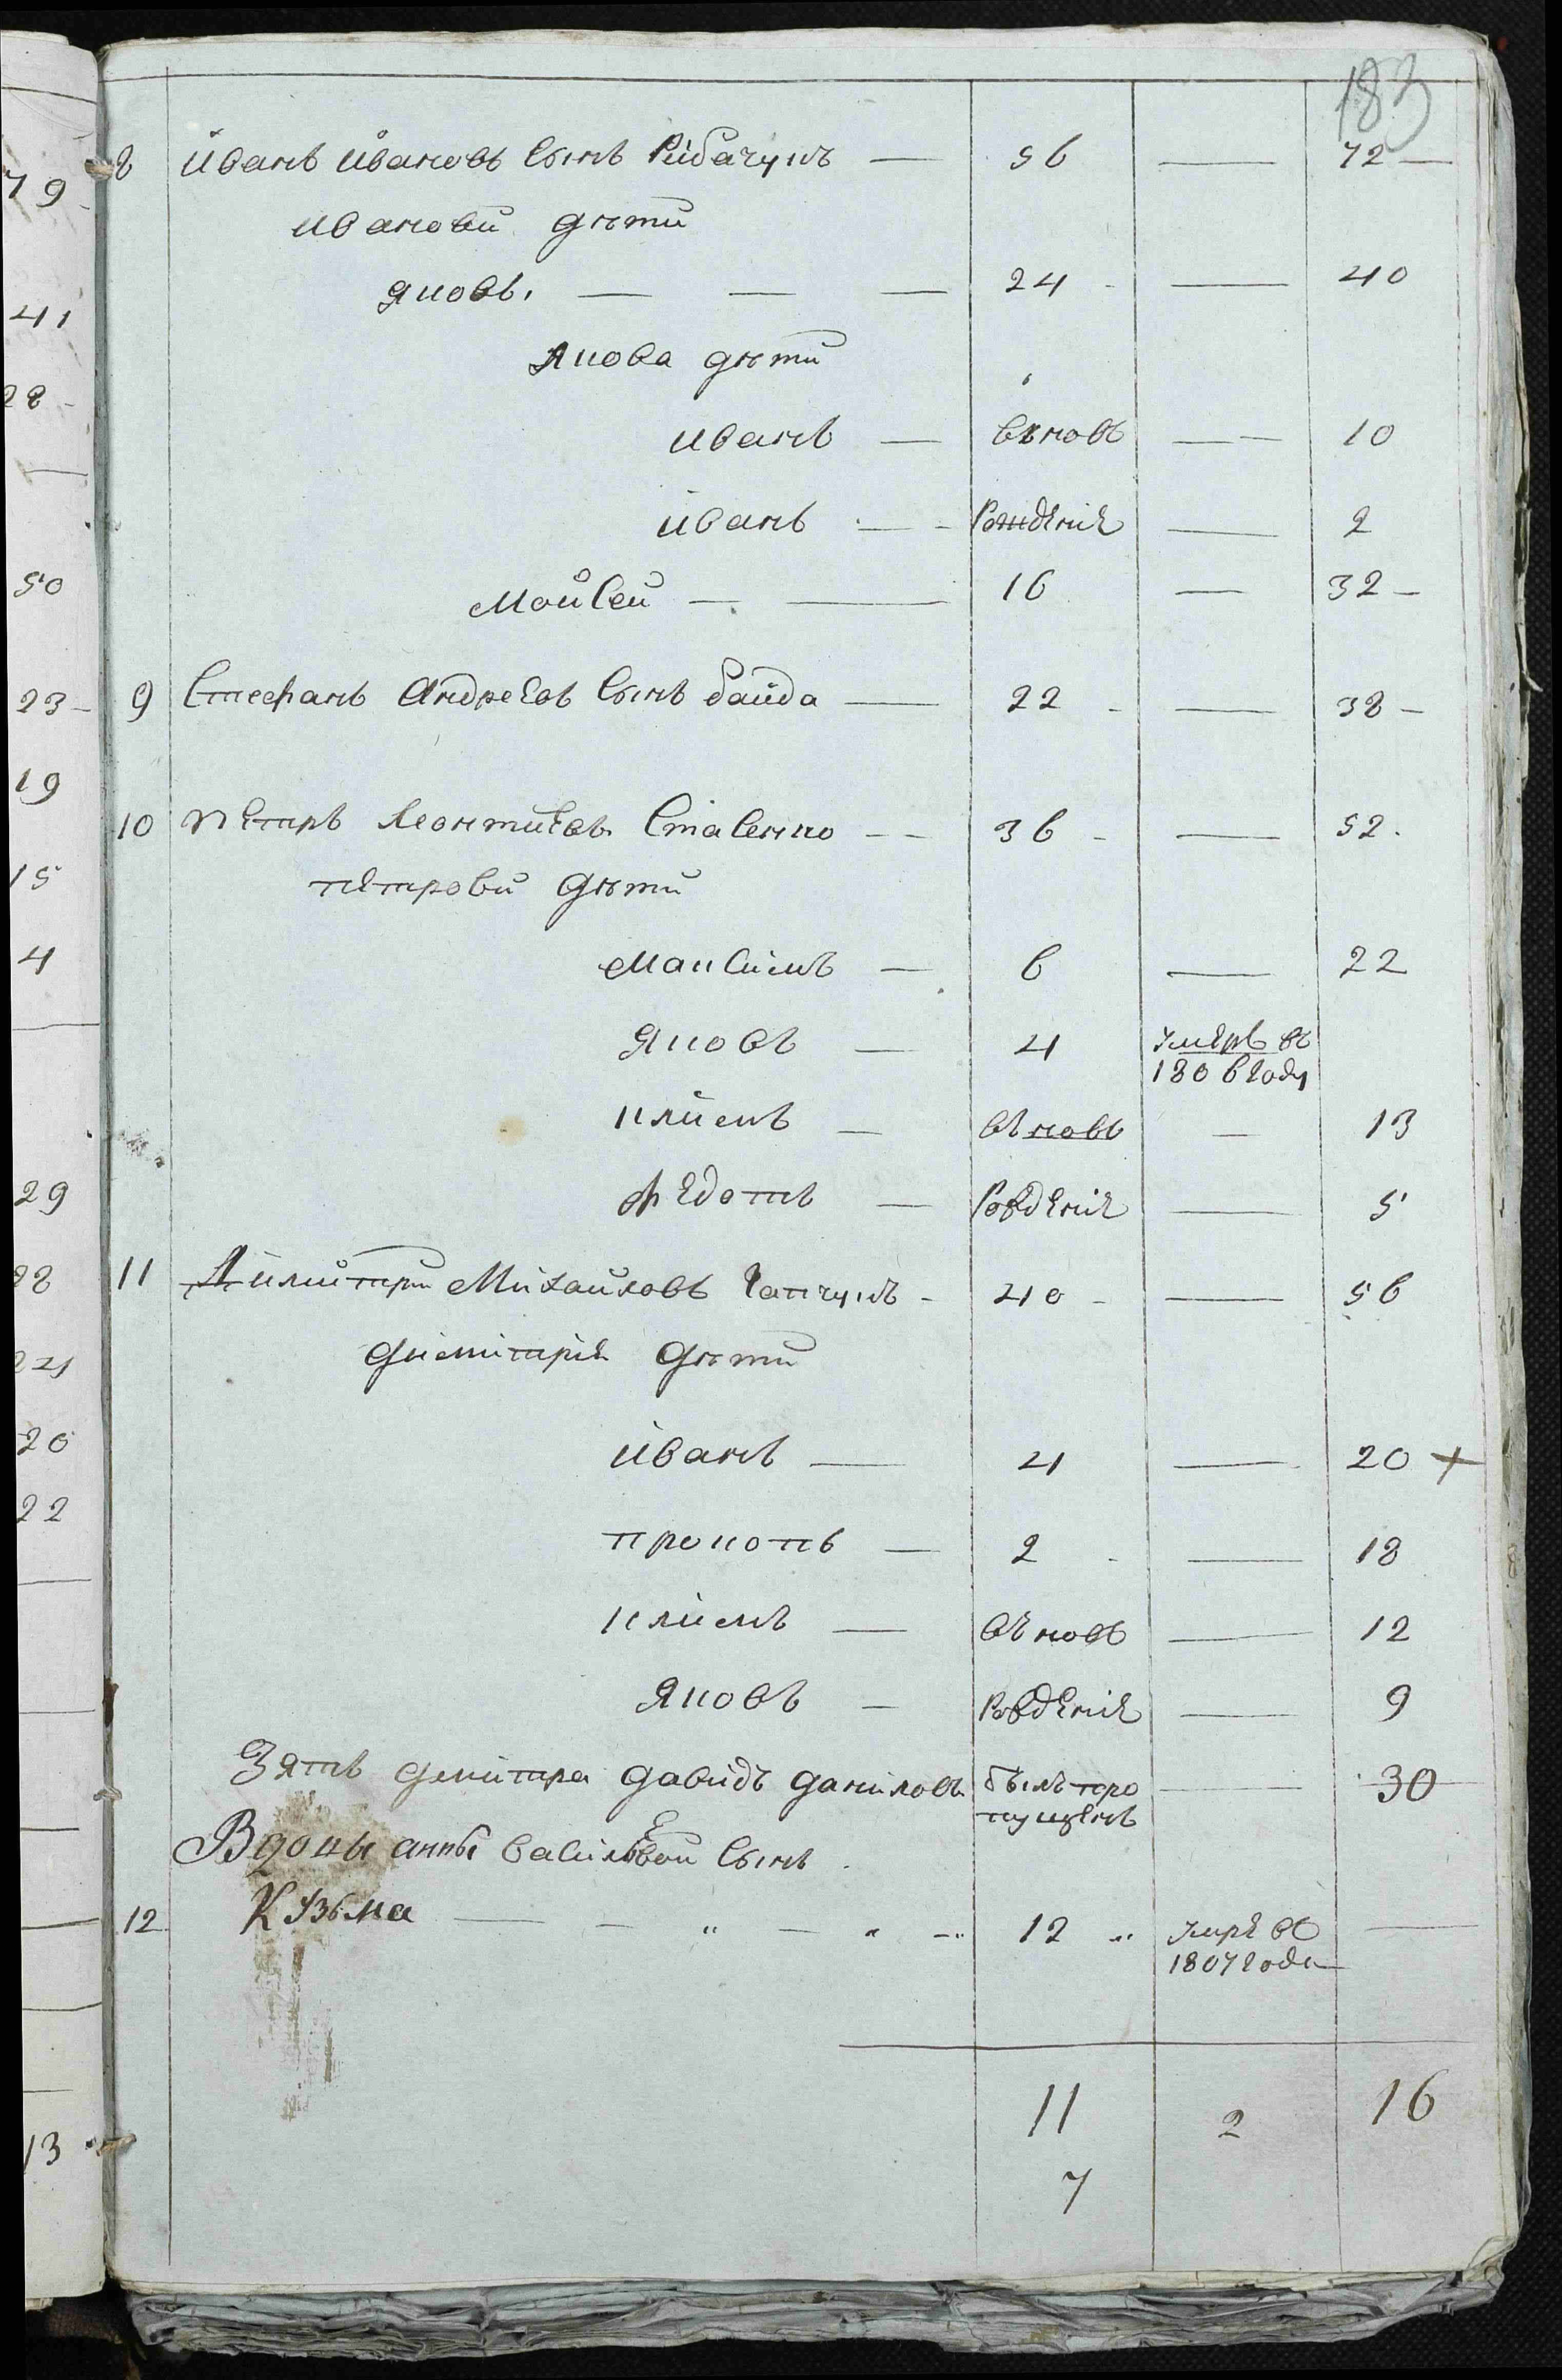 183
8 Иванъ Ивановъ сынъ Рибачукъ — 56 — 72 —
Иванови дѣти
Яковъ — — — 24 — 40
Якова дѣти
Иванъ — вновь — 10
Иванъ — рожденіе — 2
Мойсей — 16 — 32 —
9 Стефанъ Андреевъ сынъ байда — 22 — 38 —
10 Петръ Леонтиевъ Стасенко — 36 — 52
Петрови дѣти
Максимъ — 6 — 22
Яковъ — 4 умеръ въ
1806 году
Климъ — вновь — 13
Федотъ — рожденіе — 5
11 Димитри Михайловъ Капчукъ — 40 — 56
Димитрія дѣти
Иванъ — 4 — 20 +
Прокопъ — 2 — 18
Климъ — вновь — 12
Яковъ — рожденіе — 9
Зять Демитра Давидъ Даниловъ былъ про — 30
пущенъ
Вдовы анны васильевой сынъ
12 Кузьма — 12 умре въ —
1807 года
11 2 16
7
79
41
28
50
23
19
15
4
29
28
24
20
22
13